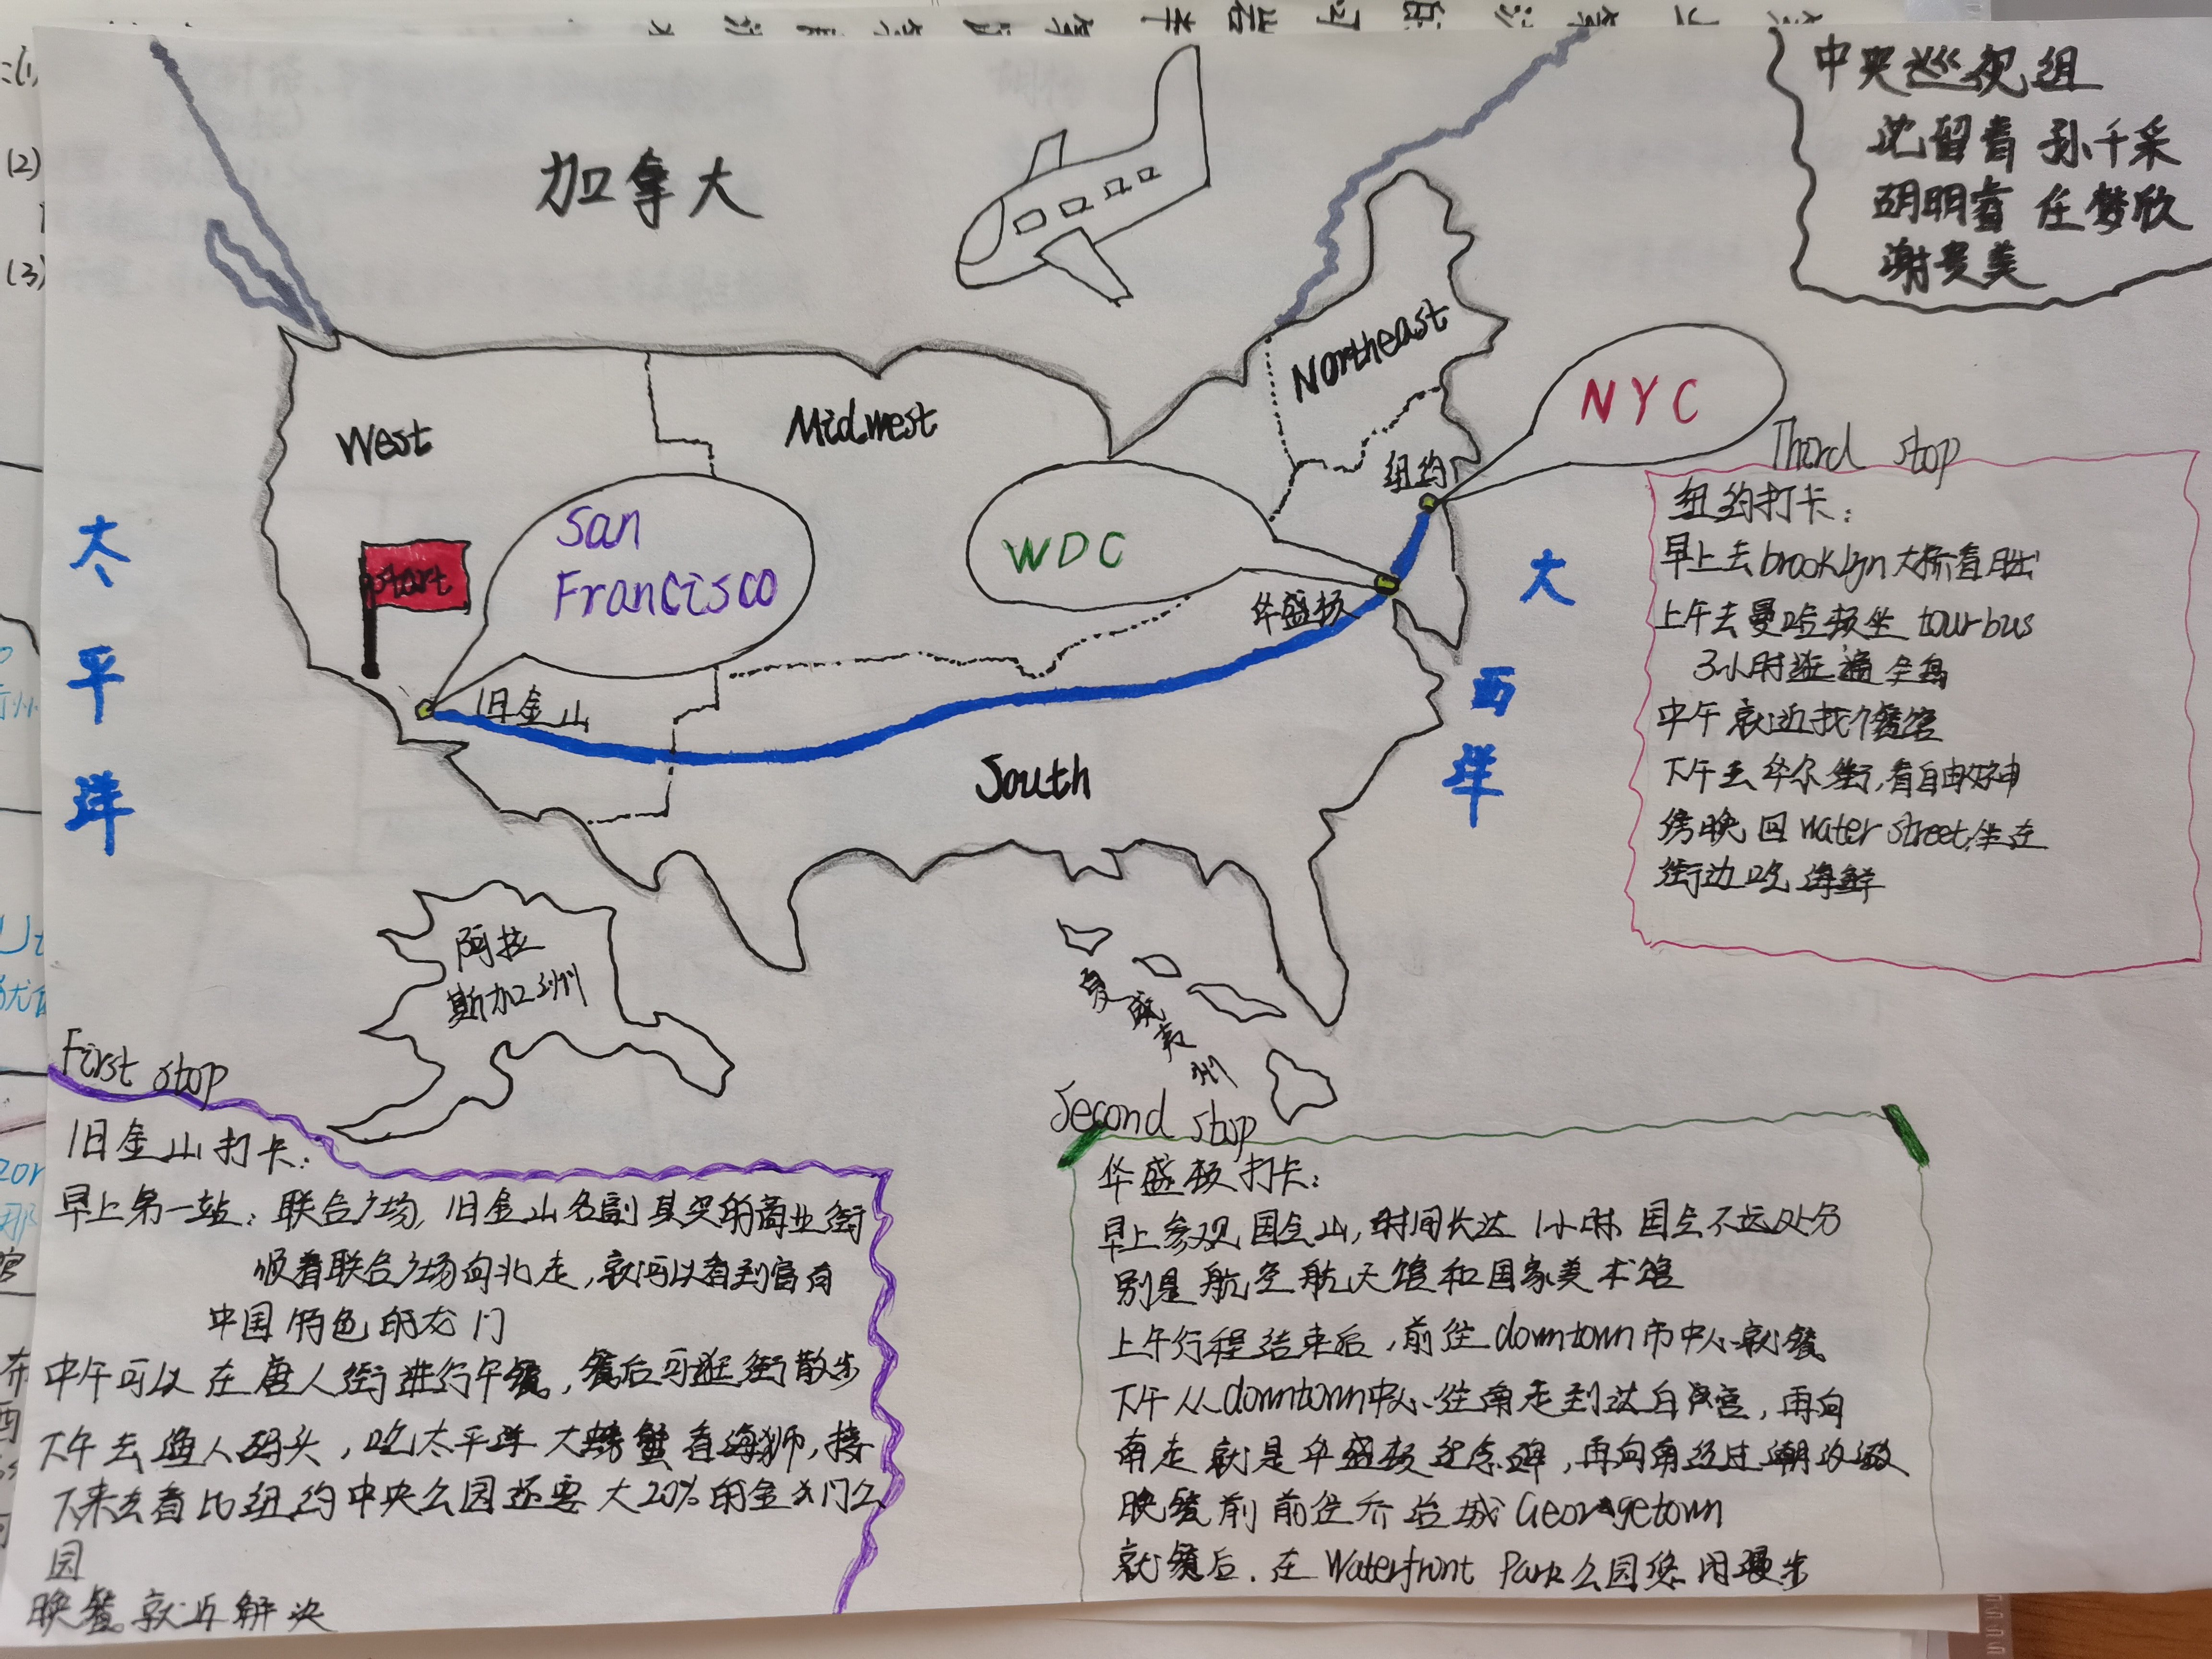 中央巡视组
沈留青 孙千采
胡明睿 任梦欣
谢贵美
加拿大
Northeast
West
Midwest
NYC
纽约
San
Francisco
WDC
start
华盛顿
旧金山
South
太平洋
大西洋
阿拉
斯加州
夏威夷州
Third stop
纽约打卡：
早上去brooklyn大桥看日出
上午去曼哈顿坐 tour bus
3小时逛遍全岛
中午就近找个餐馆
下午去华尔街,看自由女神
傍晚回water street,坐在
街边吃海鲜
First stop
旧金山打卡：
早上第一站：联合广场,旧金山名副其实的商业街
顺着联合广场向北走,就可以看到富有
中国特色的龙门
中午可以在唐人街进行午餐,餐后可逛街散步
下午去渔人码头,吃太平洋大螃蟹看海狮,接
下来去看比纽约中央公园还要大20%的金门公
园
晚餐就近解决
Second stop
华盛顿打卡：
早上参观国会山,时间长达1小时.国会不远处分
别是航空航天馆和国家美术馆
上午行程结束后,前往downtown市中心就餐
下午从downtown中心往南走到达白宫,再向
南走就是华盛顿纪念碑,再向南经过潮汐湖
晚餐前前往乔治城Georgetown
就餐后.在Waterfront Park公园悠闲漫步